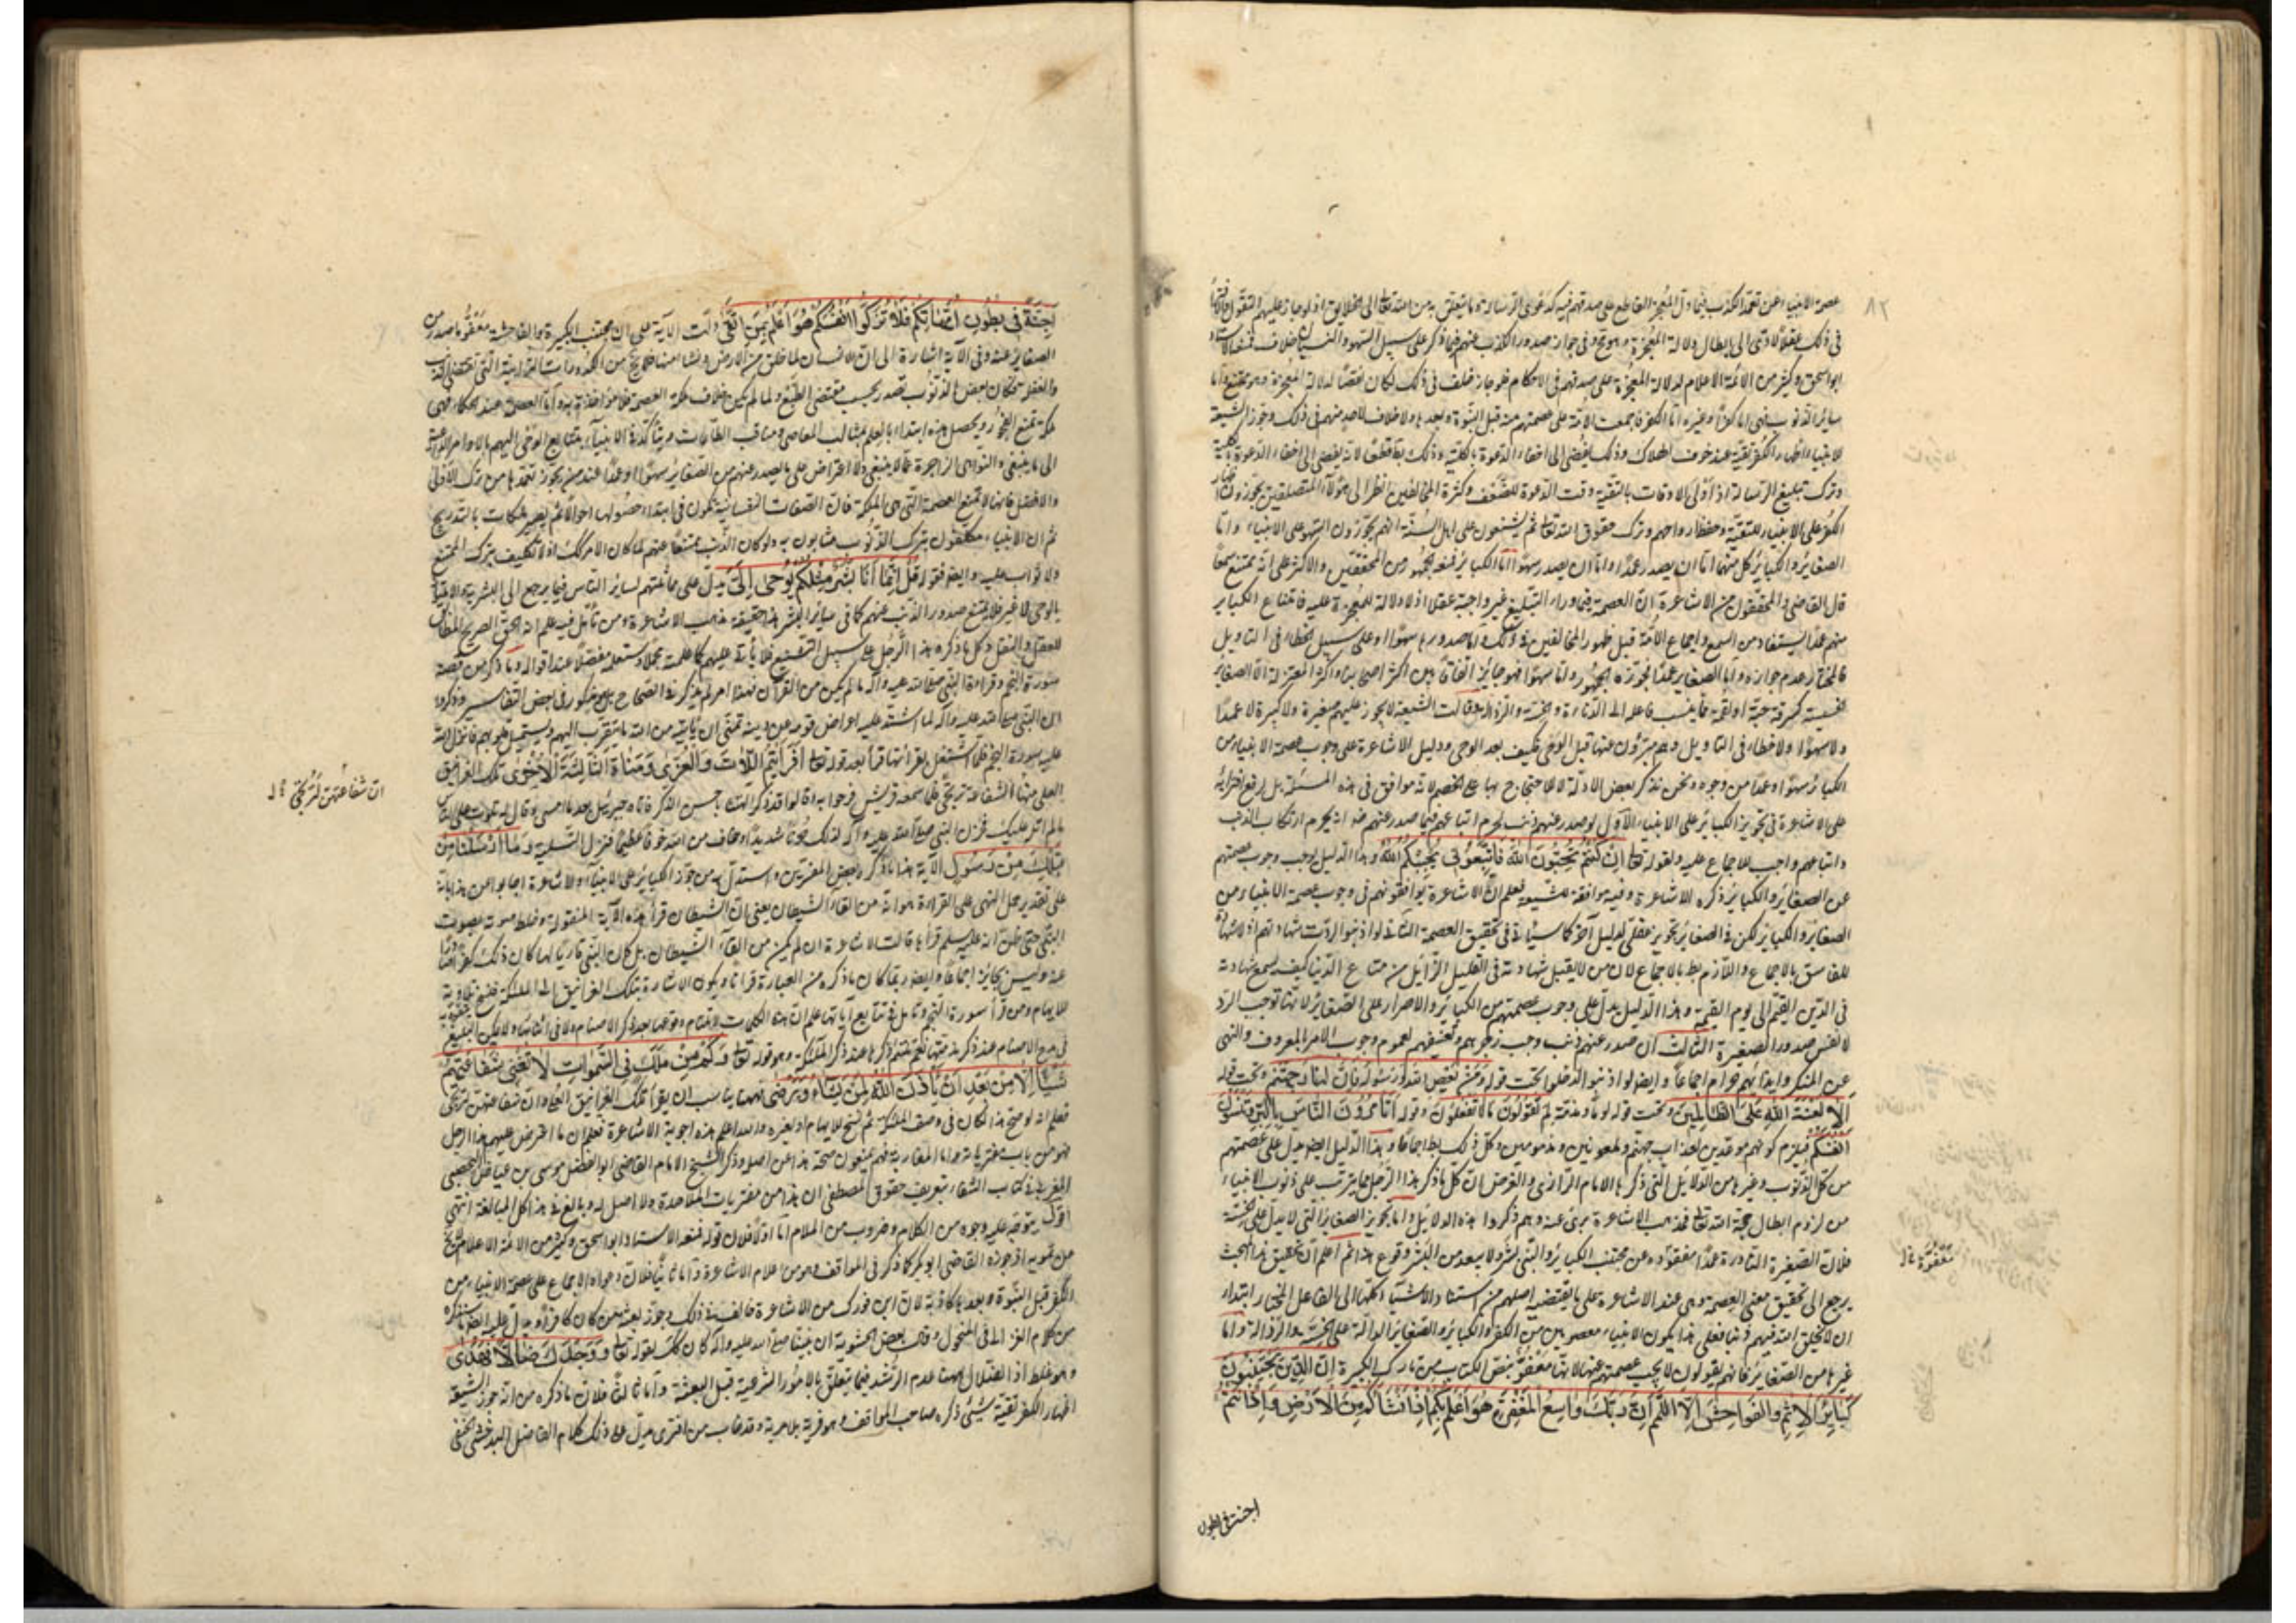 ٨٢
عصمة الانبياء عن تعمد الكذب فيما دل المعجز القاطع على صدقهم فيه كدعوى الرسالة وما يتعلق به من الله تعالى الى الخلايق اذ لو جاز عليهم التقول
في ذلك عقلا لادى الى ابطال دلالة المعجزة وهو مح وفي جواز صدور الكذب عنهم فيما ذكر على سبيل السهو والنسيان خلاف فمنعه الاستاد
ابو اسحق وكثير من الائمة الاعلام لدلالة المعجزة على صدقهم في الاحكام فلو جاز خلف في ذلك لكان نقضا لدلالة المعجزة وهو ممتنع واما
سائر الذنوب فهي اما كفر او غيره اما الكفر فاجمعت الامة على عصمتهم منه قبل النبوة وبعدها ولا خلاف لاحد منهم في ذلك وجوز الشيعة
للانبياء اظهار الكفر تقية عند خوف الهلاك وذلك يفضي الى اخفاء الدعوة بالكلية
وترك تبليغ الرسالة اذ اولى الاوقات بالتقية وقت الدعوة للضعف وكثرة المخالفين انظر الى هؤلاء المتصلفين يجوزون
الكفر على الانبياء للتقية وحفظ ارواحهم وترك حقوق الله تعالى ثم يشنعون على اهل السنة انهم يجوزون السهو على الانبياء واما
الصغاير والكباير كل منهما اما ان يصدر عمدا واما ان يصدر سهوا اما الكباير فمنعه الجمهور من المحققين والاكثر على انه ممتنع سمعا
قال القاضي والمحققون من الاشاعرة ان العصمة فيما وراء التبليغ غير واجبة عقلا اذ لا دلالة للمعجزة عليه فامتناع الكباير
منهم عمدا يستفاد من السمع واجماع الامة قبل ظهور المخالفين في ذلك واما صدورها سهوا او على سبيل الخطاء في التاويل
فالمختار عدم جوازه واما الصغاير عمدا فجوزه الجمهور واما سهوا فهو جايز اتفاقا بين اكثر اصحابنا واكثر المعتزلة الا الصغاير
الخسيسة كسرقة حبة او لقمة مما ينسب فاعله الى الدناءة والخسة والرذالة وقالت الشيعة لا يجوز عليهم صغيرة ولا كبيرة لا عمدا
ولا سهوا ولا خطاء في التاويل وهم مبرؤن عنها قبل الوحي فكيف بعد الوحي ودليل الاشاعرة على وجوب عصمة الانبياء من
الكباير سهوا وعمدا من وجوه ونحن نذكر بعض الادلة لا للاحتجاج بها على الخصم لانه موافق في هذه المسئلة بل لرفع افترائه
على الاشاعرة في تجويز الكباير على الانبياء الاول لو صدر عنهم ذنب لحرم اتباعهم فيما صدر عنهم ضرورة انه يحرم ارتكاب الذنب
واتباعهم واجب للاجماع عليه ولقوله تعالى ان كنتم تحبون الله فاتبعوني يحببكم الله وهذا الدليل يوجب وجوب عصمتهم
عن الصغاير والكباير ذكره الاشاعرة وفيه موافقة للشيعة فعلم ان الاشاعرة يوافقونهم في وجوب عصمة الانبياء من
الصغاير والكباير لكن في الصغاير تجويز عقلي لدليل آخر كما سيأتي في تحقيق العصمة الثاني لو اذنبوا لردت شهادتهم اذ لا شهادة
للفاسق بالاجماع واللازم بط بالاجماع لان من لا يقبل شهادته في القليل الزايل من متاع الدنيا كيف يسمع شهادته
في الدين القيم الى يوم القيمة وهذا الدليل يدل على وجوب عصمتهم من الكباير والاصرار على الصغاير لانها توجب الرد
لا نفس صدور الصغيرة الثالث ان صدر عنهم ذنب وجب زجرهم وتعنيفهم لعموم وجوب الامر بالمعروف والنهي
عن المنكر وايذائهم حرام اجماعا وايضا لو اذنبوا لدخلوا تحت قوله ومن يعص الله ورسوله فان له نار جهنم وتحت قوله
الا لعنة الله على الظالمين وتحت قوله لوما ومذمة لم تقولون ما لا تفعلون وقوله اتأمرون الناس بالبر وتنسون
انفسكم فيلزم كونهم موعدين بعذاب جهنم وملعونين ومذمومين وكل ذلك بط اجماعا وهذا الدليل ايضا يدل على عصمتهم
من كل الذنوب وغيرها من الدلايل التي ذكرها الامام الرازي والغرض ان كل ما ذكر هذا الرجل مما يترتب على ذنوب الانبياء
من لزوم ابطال حجة الله تعالى فمذهب الاشاعرة برئ عنه وهم ذكروا هذه الدلايل واما تجويز الصغاير التي لا يدل على الخسة
فلان الصغيرة النادرة عمدا معفوة عن مجتنب الكباير والنبي بشر ولا يبعد من البشر وقوع هذا ثم اعلم ان تحقيق هذا المبحث
يرجع الى تحقيق معنى العصمة وهي عند الاشاعرة على ما يقتضيه اصلهم من استناد الاشياء كلها الى الفاعل المختار ابتداء
ان لا يخلق الله فيهم ذنبا فعلى هذا يكون الانبياء معصومين من الكفر والكباير والصغاير الدالة على الخسة والرذالة واما
غيرها من الصغاير فانهم يقولون لا يجب عصمتهم عنها لانها معفو بنص الكتاب من تارك الكبيرة ان الذين يجتنبون
كباير الاثم والفواحش الا اللمم ان ربك واسع المغفرة هو اعلم بكم اذ انشاكم من الارض واذ انتم
معفوة
اجنة في بطون
اجنة في بطون امهاتكم فلا تزكوا انفسكم هو اعلم بمن اتقى دلت الآية على ان مجتنب الكبيرة والفاحشة معفو ما صدر من
الصغاير عنه وفي الآية اشارة الى ان الانسان لما خلق من الارض ونشا منها فلا يخ من الكدورات الترابية التي تقتضي الذنب
والغفلة فكان بعض الذنوب تصدر بحسب مقتضى الطبع ولما لم يكن خلاف ملكة العصمة فلا مؤاخذة به واما العصمة عند الحكماء فهي
ملكة تمنع الفجور ويحصل هذه ابتداء بالعلم بمثالب المعاصي ومناقب الطاعات ويتأكد في الانبياء بتتابع الوحي اليهم بالاوامر الداعية
الى ما ينبغي والنواهي الزاجرة عما لا ينبغي ولا اعتراض على ما يصدر عنهم من الصغاير سهوا او عمدا عند من يجوز تعمدها من ترك الاولى
والافضل فانها لا تمنع العصمة التي هي الملكة فان الصفات النفسانية تكون في ابتداء حصولها احوالا ثم يصير ملكات بالتدريج
ثم ان الانبياء مكلفون بترك الذنوب مثابون به ولو كان الذنب ممتنعا عنهم لما كان الامر كذلك اذ لا تكليف بترك الممتنع
ولا ثواب عليه وايضا فقوله قل انما انا بشر مثلكم يوحى الي يدل على مماثلتهم لساير الناس فيما يرجع الى البشرية والامتياز
بالوحي لا غير فلا يمتنع صدور الذنب عنهم كما في ساير البشر هذا حقيقة مذهب الاشاعرة ومن تأمل فيه علم انه الحق الصريح المطابق
للعقل والنقل وكل ما ذكره هذا الرجل على سبيل التشنيع فلا يأتي عليهم كما علمت مجملا وستعلمه مفصلا عند اقواله وما ذكر من قصة
سورة النجم وقراءة النبي صلى الله عليه وآله ما لم يكن من القرآن فهذا امر لم يذكر في الصحاح بل هو مذكور في بعض التفاسير وذكروا
ان النبي صلى الله عليه وآله لما اشتد عليه اعراض قومه عن دينه تمنى ان يأتيه من الله ما يتقرب اليهم ويستميل قلوبهم فانزل الله
عليه سورة النجم فلما اشتغل بقرائتها قرأ بعد قوله تعالى افرايتم اللات والعزى ومناة الثالثة الاخرى تلك الغرانيق
العلى منها الشفاعة ترتجى فلما سمعه قريش فرحوا به وقالوا قد ذكر آلهتنا باحسن الذكر فاتاه جبرئيل بعد ما امسى وقال له تلوت على الناس
ما لم اتل عليك فحزن النبي صلى الله عليه وآله لذلك حزنا شديدا وخاف من الله خوفا عظيما فنزل التسلية وما ارسلنا من
قبلك من رسول الآية هذا ما ذكره بعض المفسرين واستدل به من جوز الكباير على الانبياء والاشاعرة اجابوا عن هذا بانه
على تقدير حمل التمني على القراءة هو انه من القاء الشيطان يعني ان الشيطان قرأ هذه الآية المنقولة وخلط صوته بصوت
النبي حتى ظن انه عليه السلم قرأها قالت الاشاعرة ان لم يكن من القاء الشيطان بل كان النبي قاريا لها كان ذلك كفرا صادرا
عنه وليس بجائز اجماعا وايضا ربما كان ما ذكره من العبارة قرآنا ويكون الاشارة بتلك الغرانيق الى الملئكة فنسخ تلاوته
للايهام ومن قرأ سورة النجم وتأمل في تتابع آياتها علم ان هذه الكلمات لا يلتئم وقوعها بعد ذكر الاصنام ولا في اثنائها ولا يمكن للبليغ
في مدح الاصنام عند ذكر مذمتها نعم يلتئم ذكرها عند ذكر الملئكة وهو قوله تعالى وكم من ملك في السموات لا تغني شفاعتهم
شيئا الا من بعد ان يأذن الله لمن يشاء ويرضى فههنا يناسب ان يقرأ تلك الغرانيق العلى وان شفاعتهن ترتجى
فعلم انه لو صح هذا لكان في وصف الملئكة ثم نسخ للايهام او لغيره والله اعلم هذه اجوبة الاشاعرة فعلم ان ما اعترض عليهم هذا الرجل
فهو من باب مفترياته واما المغاربة فهم يمنعون صحة هذا عن اصله وذكر الشيخ الامام القاضي ابو الفضل موسى بن عياض اليحصبي
المغربي في كتاب الشفاء بتعريف حقوق المصطفى ان هذا من مفتريات الملاحدة ولا اصل له وبالغ في هذا كل المبالغة انتهى
اقول يتوجه عليه وجوه من الكلام وضروب من الملام اما اولا فلان قوله فمنعه الاستاد ابو اسحق وكثير من الائمة الاعلام
من تمويه اذ جوزه القاضي ابو بكر كما ذكر في المواقف وهو من اعلام الاشاعرة واما ثانيا فلان دعواه الاجماع على عصمة الانبياء من
الكفر قبل النبوة وبعدها كاذبة لان ابن فورك من الاشاعرة خالف في ذلك وجوز بعثة من كان كافرا ويدل عليه ايضا ما سنذكره
من كلام الغزالي في المنخول وقال بعض الحشوية ان نبينا صلى الله عليه وآله كان كك لقوله تعالى ووجدك ضالا فهدى
وهو غلط اذ الضلال ههنا عدم الرشد فيما يتعلق بالامور الشرعية قبل البعثة واما ثالثا فلان ما ذكره من انه جوز الشيعة
اظهار الكفر تقية شيئ ذكره صاحب المواقف وهو فرية بلا مرية وقد خاب من افترى يدل على ذلك كلام الفاضل البدخشي الحنفي
ان شفاعتهن لترتجى